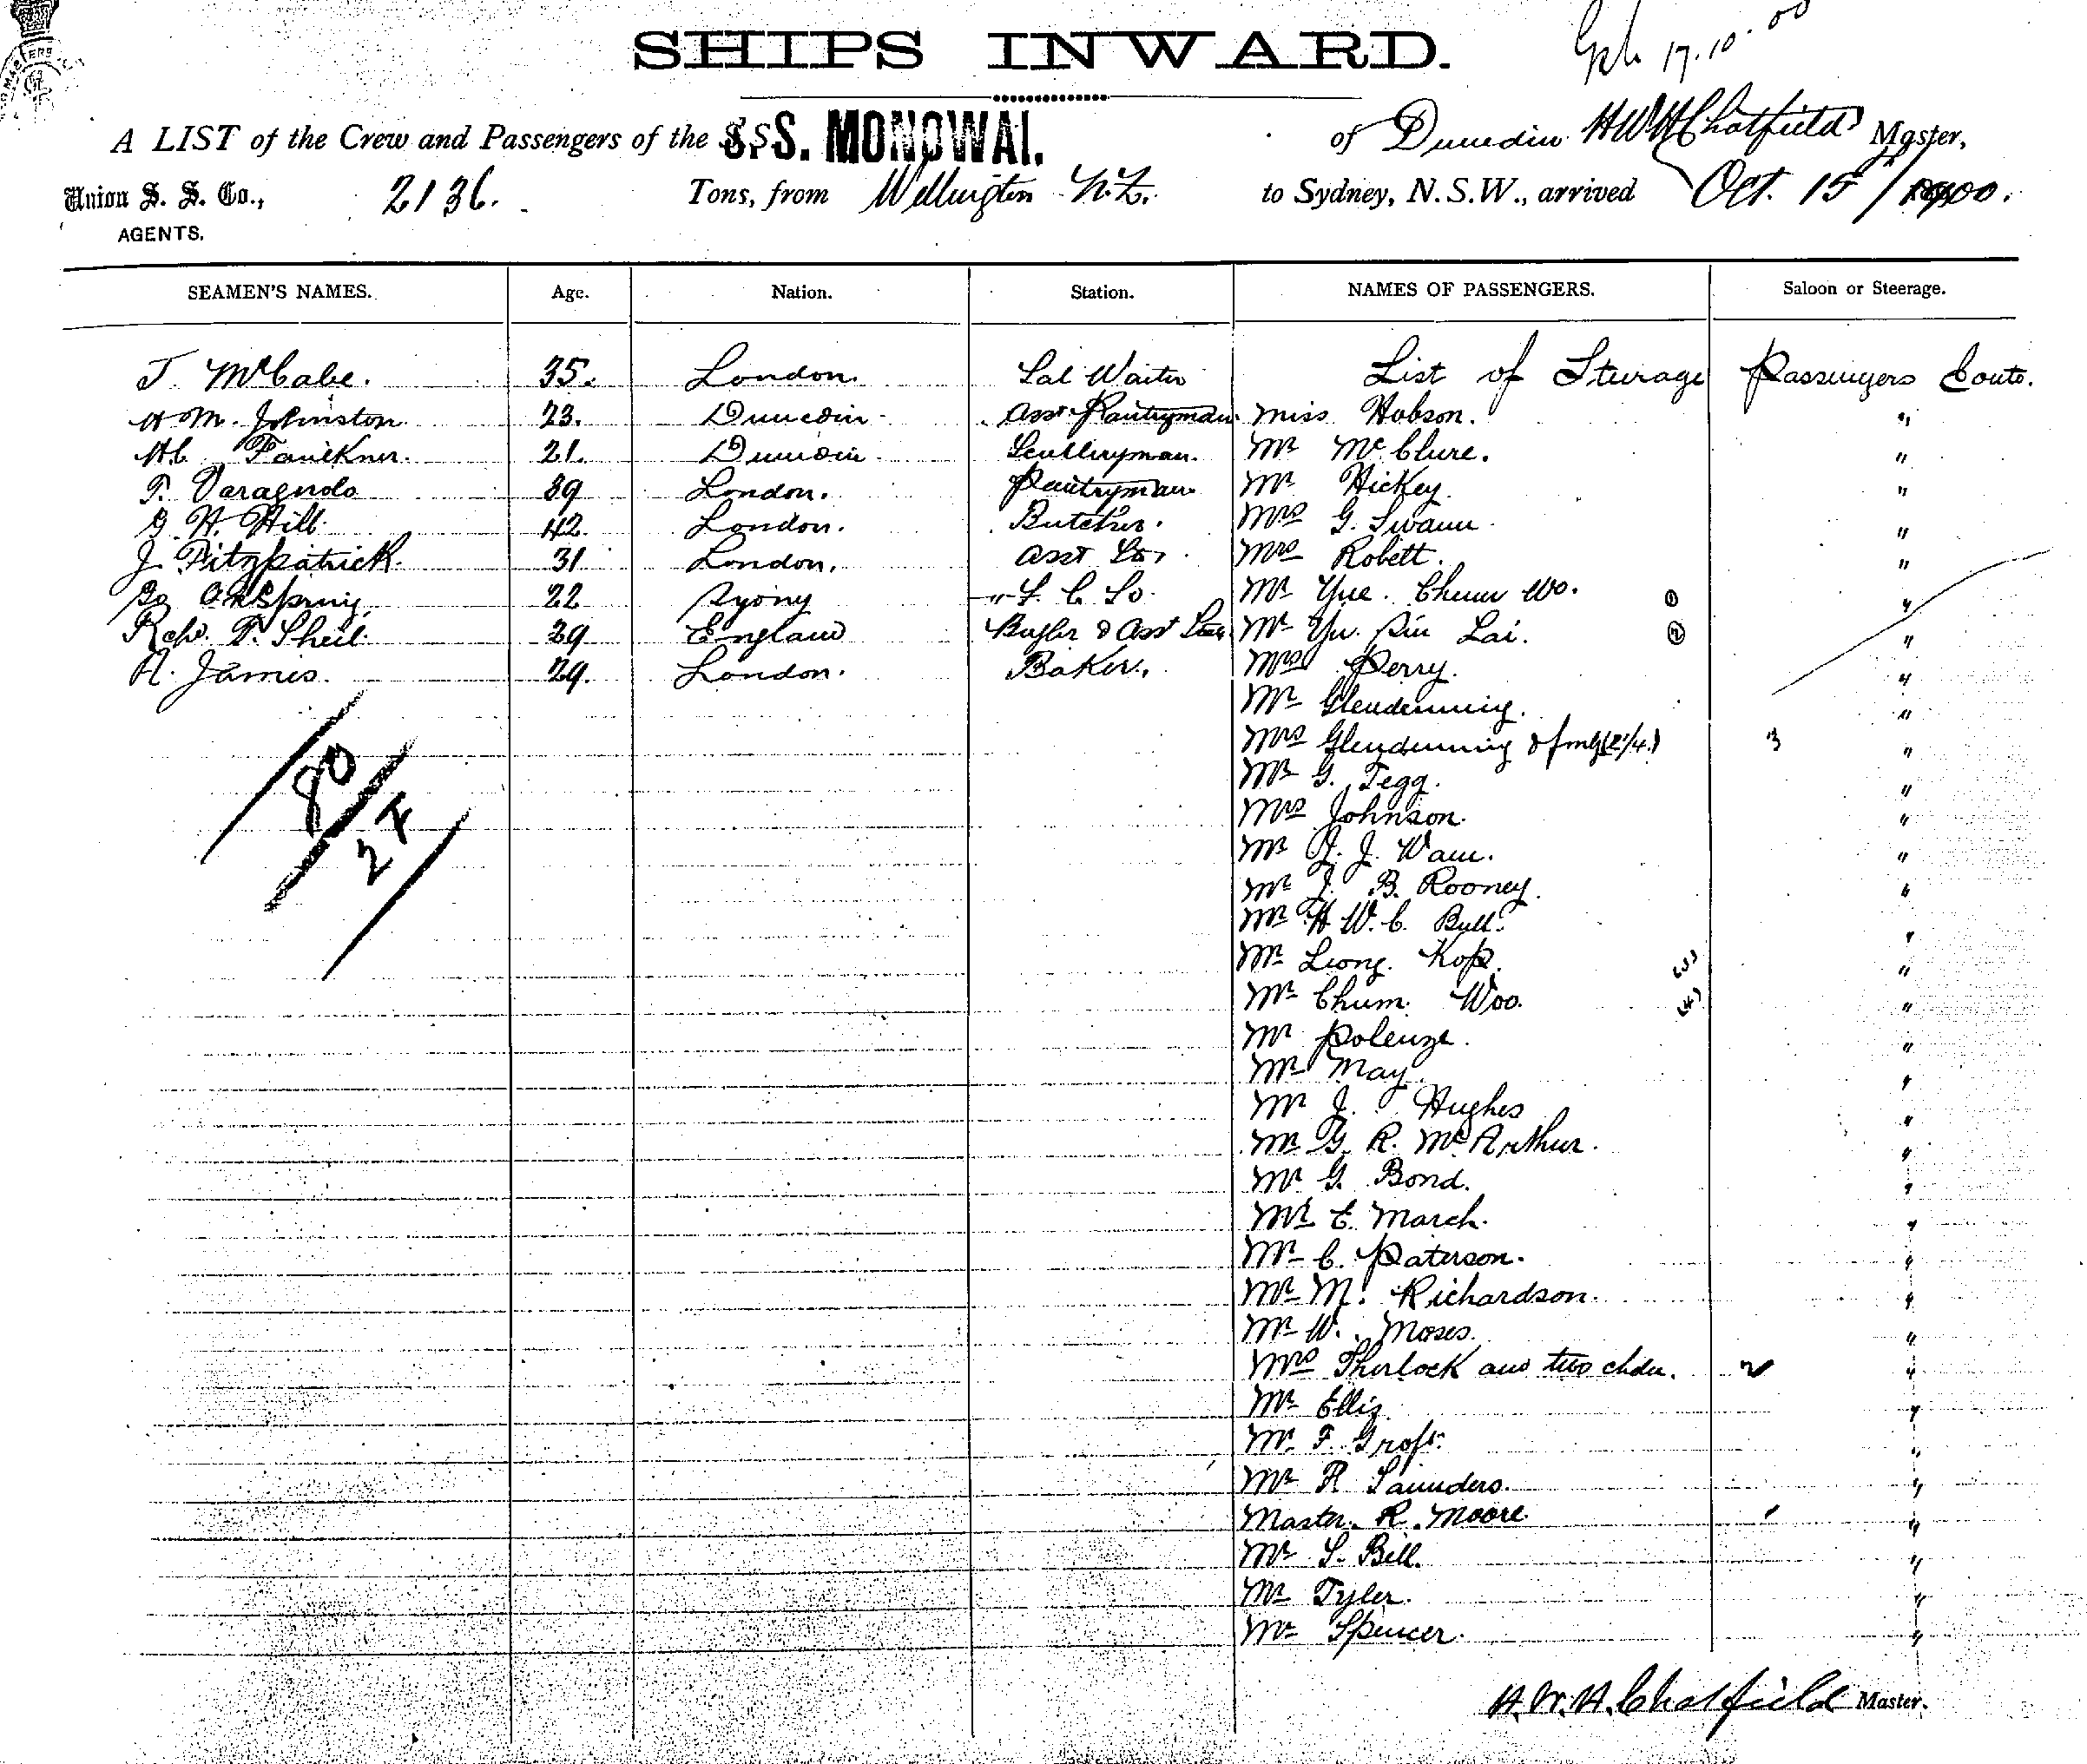 SHIPS INWARD.
17.10.00
A LIST of the Crew and Passengers of the S.S. S.S. MONOWAI. of Dunedin H W H Chatfield Master,
Union S. S. Co., 2136. Tons, from Wellington N.Z. to Sydney, N.S.W., arrived Oct. 15 / 1900.
AGENTS.
SEAMEN'S NAMES. Age. Nation. Station. NAMES OF PASSENGERS. Saloon or Steerage.
J. McCabe. 35. London. Sal Waiter List of Steerage Passengers Contd.
H M. Johnston 23. Dunedin Asst Pantryman Miss Hobson. "
H C Faulkner. 21. Dunedin Sculleryman. Mr McClure. "
F. Varagnolo 39 London. Pantryman Mr Hickey. "
G. H. Hill. 42. London. Butcher. Mrs G. Swann "
J. Fitzpatrick. 31 London. Asst Mrs Robett. "
22 Mr Yue. Chum Wo. (1) "
T. Sheil. 29 England Bugler & Asst Mr Yu. Lai. (2) "
A. James. 29. London. Baker. Mrs Perry. "
Mr Glendenning. "
Mrs Glendenning & fmly (2/4.) 3 "
Mr G. Tegg. "
80 Mrs Johnson. "
2 F Mr J. J. "
Mr J. B. Rooney. "
Mr H W. C. Bull. "
Mr Leong. Kop. (3) "
Mr Chum. Woo. (4) "
Mr Polenze. "
Mr May. "
Mr J. Hughes "
Mr G. R. McArthur. "
Mr G. Bond. "
Mr E. March. "
Mr C. Paterson. "
Mr M. Richardson. "
Mr W. Moses. "
Mrs Thurlock and two chdn. 2 "
Mr Ellis "
Mr F. "
Mr R Saunders. "
Master. R. Moore. "
Mr S. Bell. "
Mr Tyler. "
Mr Spencer. "
H. W. H. Chatfield Master.